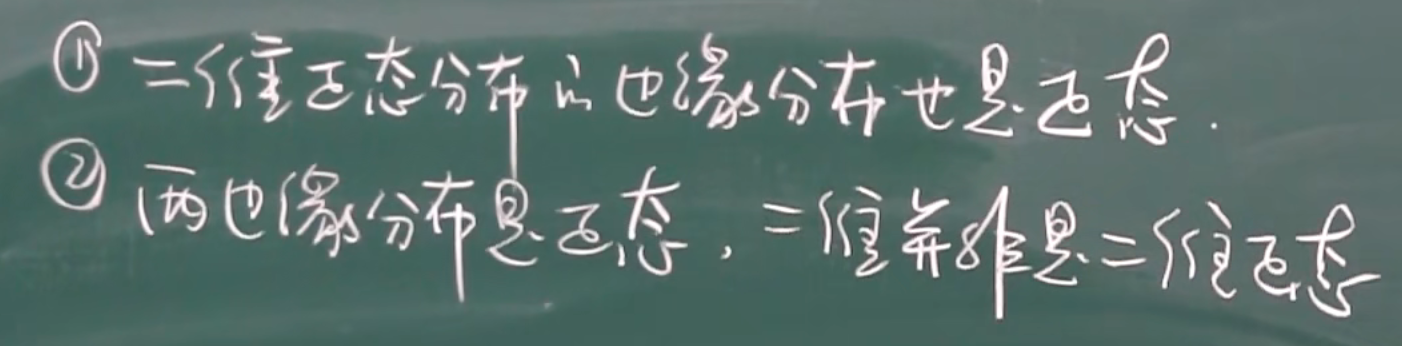 ① 二维正态分布的边缘分布也是正态.
② 两边缘分布是正态,二维并非是二维正态